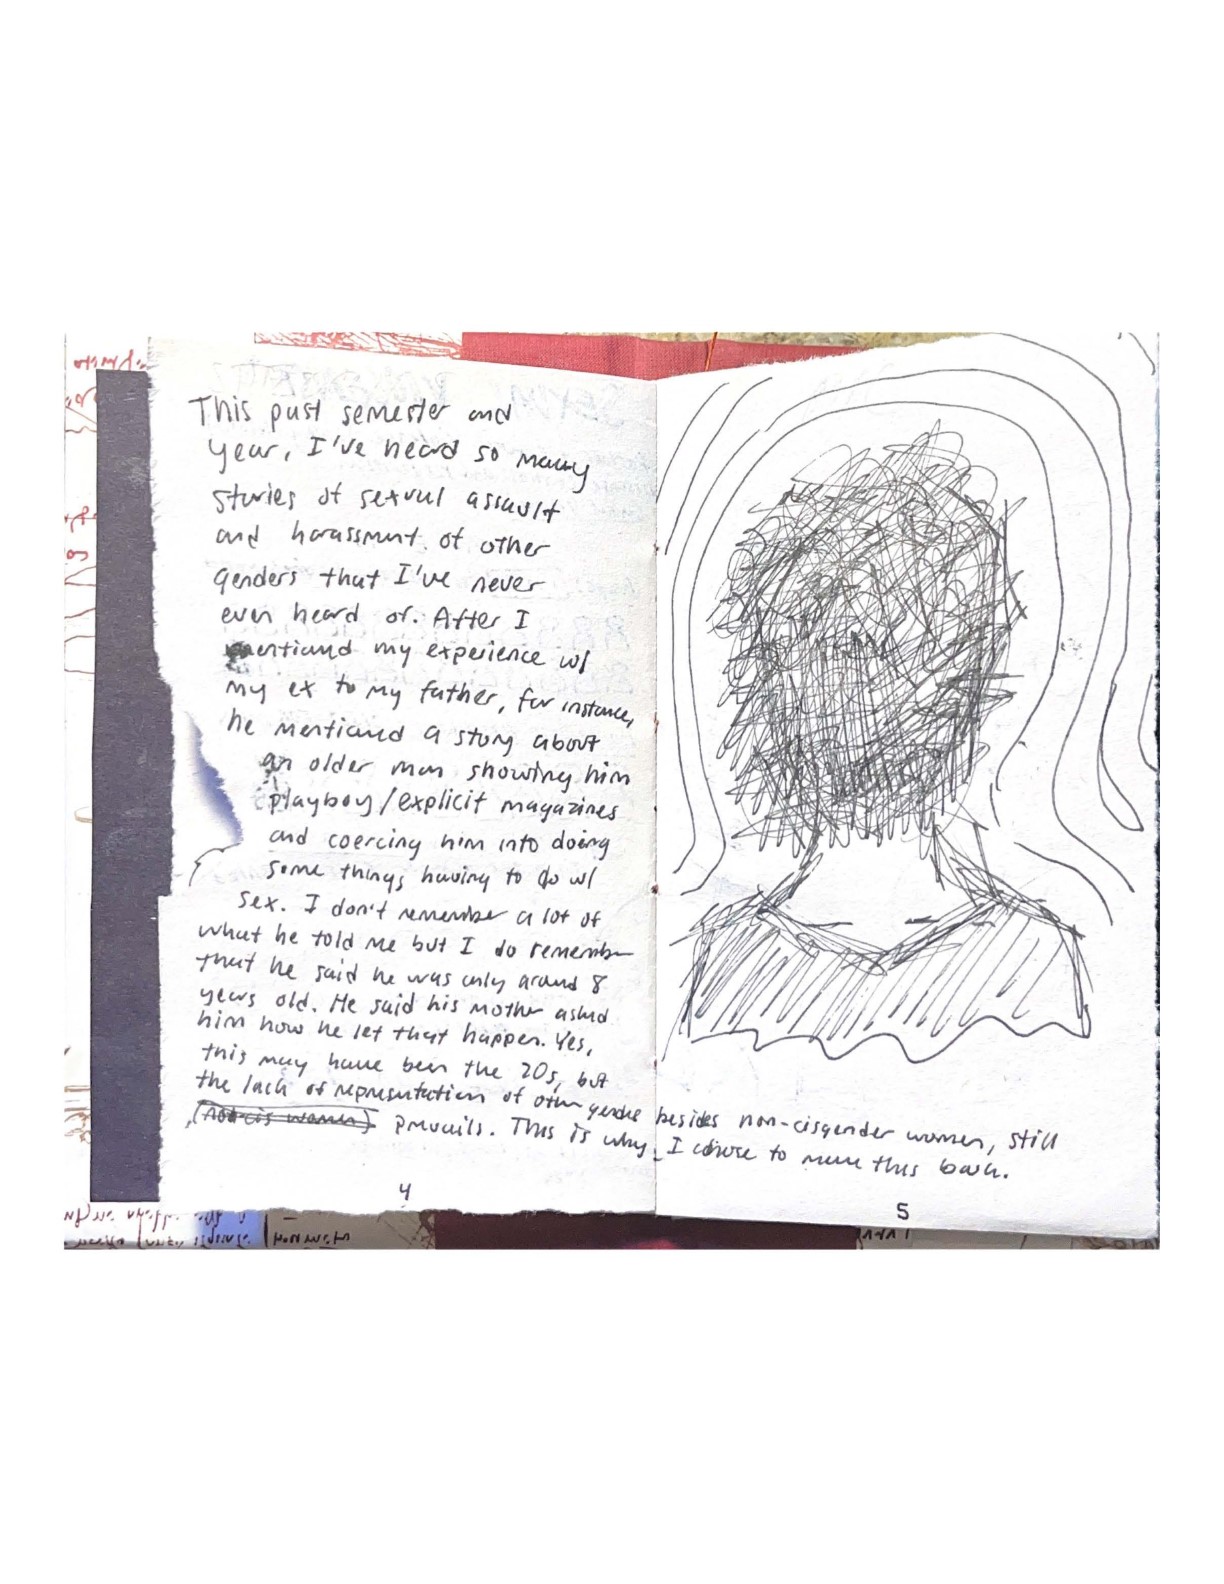 This past semester and
year, I've heard so many
stories of sexual assault
and harassment of other
genders that I've never
even heard of. After I
mentioned my experience w/
my ex to my father, for instance,
he mentioned a story about
an older man showing him
playboy/explicit magazines
and coercing him into doing
some things having to do w/
sex. I don't remember a lot of
what he told me but I do remember
that he said he was only around 8
years old. He said his mother asked
him how he let that happen. Yes,
this may have been the 20s, but
the lack of representation of other genders besides non-cisgender women, still
(not cis women) prevails. This is why I chose to make this book.
4
5